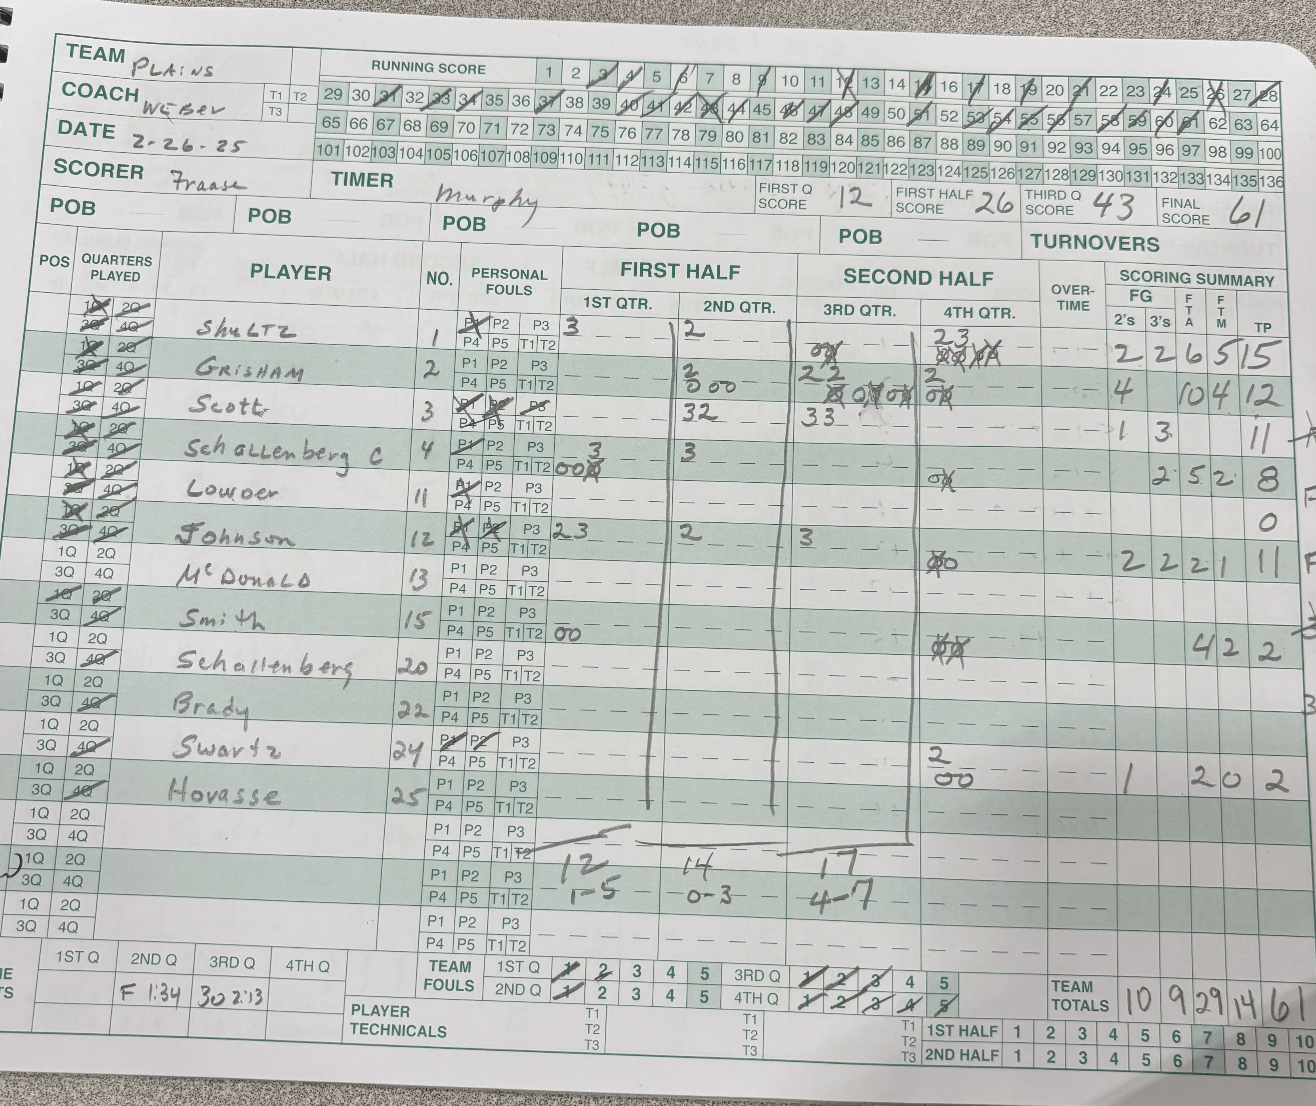 TEAM PLAINS
RUNNING SCORE 1 2 3 4 5 6 7 8 9 10 11 12 13 14 15 16 17 18 19 20 21 22 23 24 25 26 27 28
COACH WEBER T1 T2 T3
29 30 31 32 33 34 35 36 37 38 39 40 41 42 43 44 45 46 47 48 49 50 51 52 53 54 55 56 57 58 59 60 61 62 63 64
DATE 2-26-25
65 66 67 68 69 70 71 72 73 74 75 76 77 78 79 80 81 82 83 84 85 86 87 88 89 90 91 92 93 94 95 96 97 98 99 100
101 102 103 104 105 106 107 108 109 110 111 112 113 114 115 116 117 118 119 120 121 122 123 124 125 126 127 128 129 130 131 132 133 134 135 136
SCORER Fraase TIMER Murphy FIRST Q SCORE 12 FIRST HALF SCORE 26 THIRD Q SCORE 43 FINAL SCORE 61
POB POB POB POB POB TURNOVERS
POS QUARTERS PLAYED PLAYER NO. PERSONAL FOULS FIRST HALF SECOND HALF OVER-TIME SCORING SUMMARY
1ST QTR. 2ND QTR. 3RD QTR. 4TH QTR. FG 2's 3's FTA FTM TP
1Q 2Q 3Q 4Q Shultz 1 P1 P2 P3 P4 P5 T1 T2 3 2 23 2 2 6 5 15
1Q 2Q 3Q 4Q GRISHAM 2 P1 P2 P3 P4 P5 T1 T2 2 000 22 2 4 10 4 12
1Q 2Q 3Q 4Q Scott 3 P1 P2 P3 P4 P5 T1 T2 32 33 1 3 11
1Q 2Q 3Q 4Q Schallenberg C 4 P1 P2 P3 P4 P5 T1 T2 3 3 2 5 2 8
1Q 2Q 3Q 4Q Lowder 11 P1 P2 P3 P4 P5 T1 T2 0
1Q 2Q 3Q 4Q Johnson 12 P1 P2 P3 P4 P5 T1 T2 23 2 3 2 2 2 1 11
1Q 2Q 3Q 4Q McDonald 13 P1 P2 P3 P4 P5 T1 T2
1Q 2Q 3Q 4Q Smith 15 P1 P2 P3 P4 P5 T1 T2 00 4 2 2
1Q 2Q 3Q 4Q Schallenberg 20 P1 P2 P3 P4 P5 T1 T2
1Q 2Q 3Q 4Q Brady 22 P1 P2 P3 P4 P5 T1 T2
1Q 2Q 3Q 4Q Swartz 24 P1 P2 P3 P4 P5 T1 T2 2 00 1 2 0 2
1Q 2Q 3Q 4Q Hovasse 25 P1 P2 P3 P4 P5 T1 T2
1Q 2Q 3Q 4Q P1 P2 P3 P4 P5 T1 T2
1Q 2Q 3Q 4Q P1 P2 P3 P4 P5 T1 T2 12 14 17
1-5 0-3 4-7
1Q 2Q 3Q 4Q P1 P2 P3 P4 P5 T1 T2
1ST Q 2ND Q 3RD Q 4TH Q
F 1:34 30 2:13
TEAM FOULS 1ST Q 1 2 3 4 5 3RD Q 1 2 3 4 5
2ND Q 1 2 3 4 5 4TH Q 1 2 3 4 5
TEAM TOTALS 10 9 29 14 61
PLAYER TECHNICALS T1 T2 T3 T1 T2 T3 T1 T2 T3
1ST HALF 1 2 3 4 5 6 7 8 9 10
2ND HALF 1 2 3 4 5 6 7 8 9 10